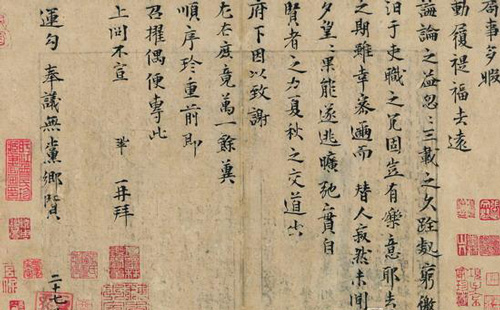 局事多暇
動履禔福去遠
誨論之益忽忽三載之久跧處窮徼
汩于吏職之冗固豈有樂意耶去
之期雖幸密邇而替人寂然未聞
夕望望果能遂逃曠弛實自
賢者之力夏秋之交道出
府下因以致謝
左右庶竟萬一餘冀
順序珍重前即
召擢偶便專此
上問不宣 鞏再拜
運勾奉議無黨鄉賢
二十七